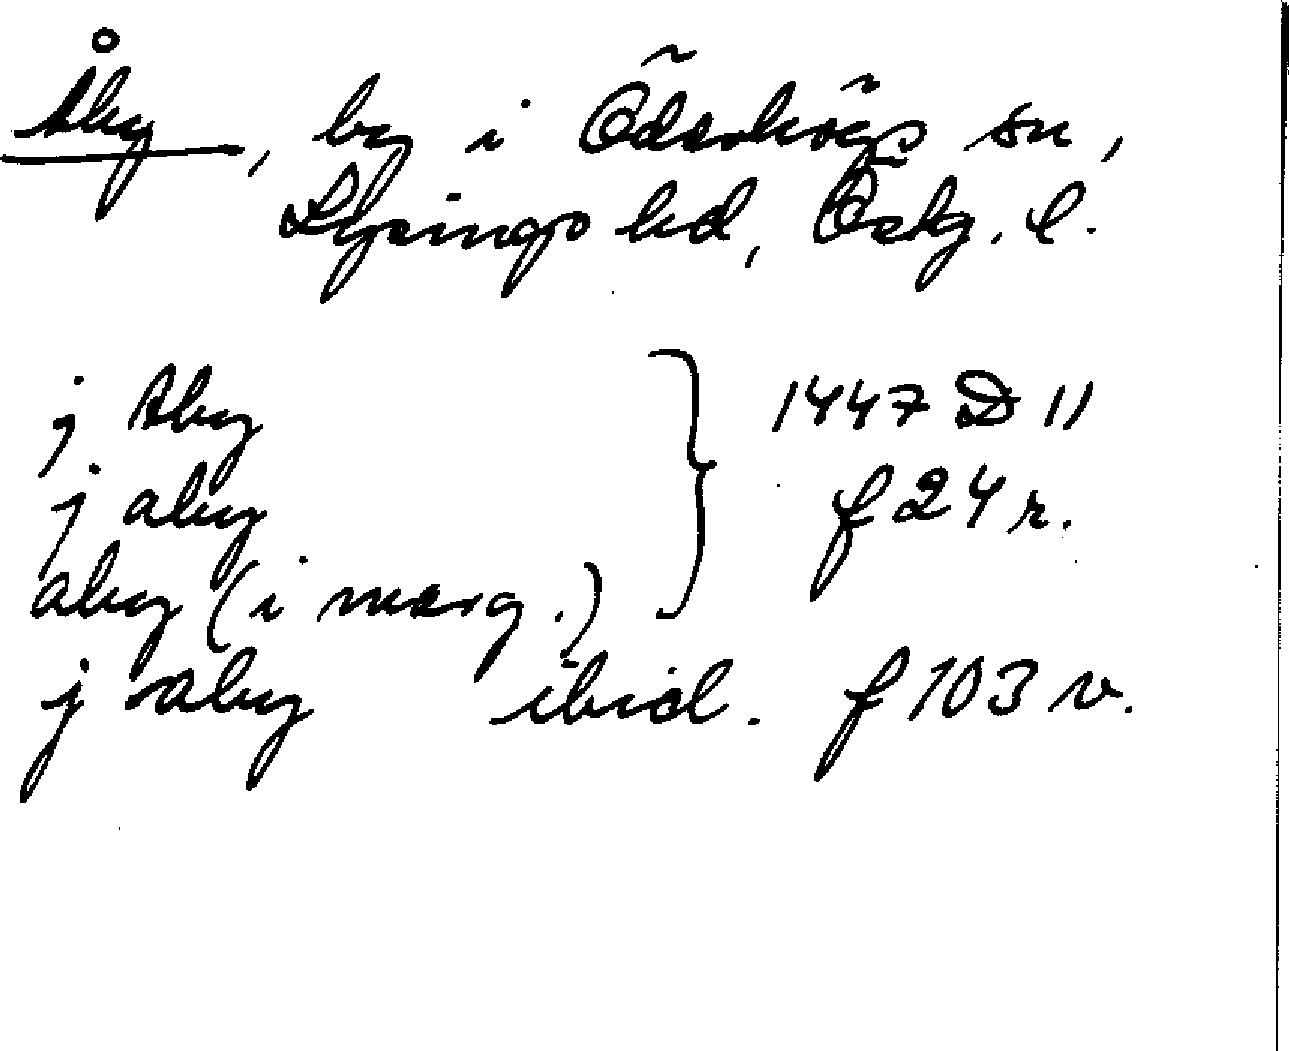 Åby, by i Ödeshögs sn,
Lysings hd, Östg. l.
j Aby } 1447 D 11
j aby f 24 r.
aby (i marg.)
j aby ibid. f 103 v.